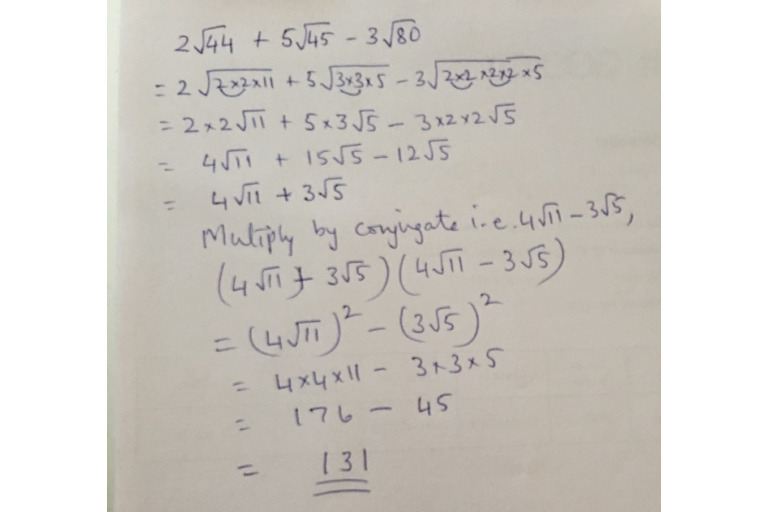 2√44 + 5√45 - 3√80
= 2√2×2×11 + 5√3×3×5 - 3√2×2×2×2×5
= 2×2√11 + 5×3√5 - 3×2×2√5
= 4√11 + 15√5 - 12√5
= 4√11 + 3√5
Multiply by conjugate i.e. 4√11 - 3√5,
(4√11 + 3√5)(4√11 - 3√5)
= (4√11)² - (3√5)²
= 4×4×11 - 3×3×5
= 176 - 45
= 131